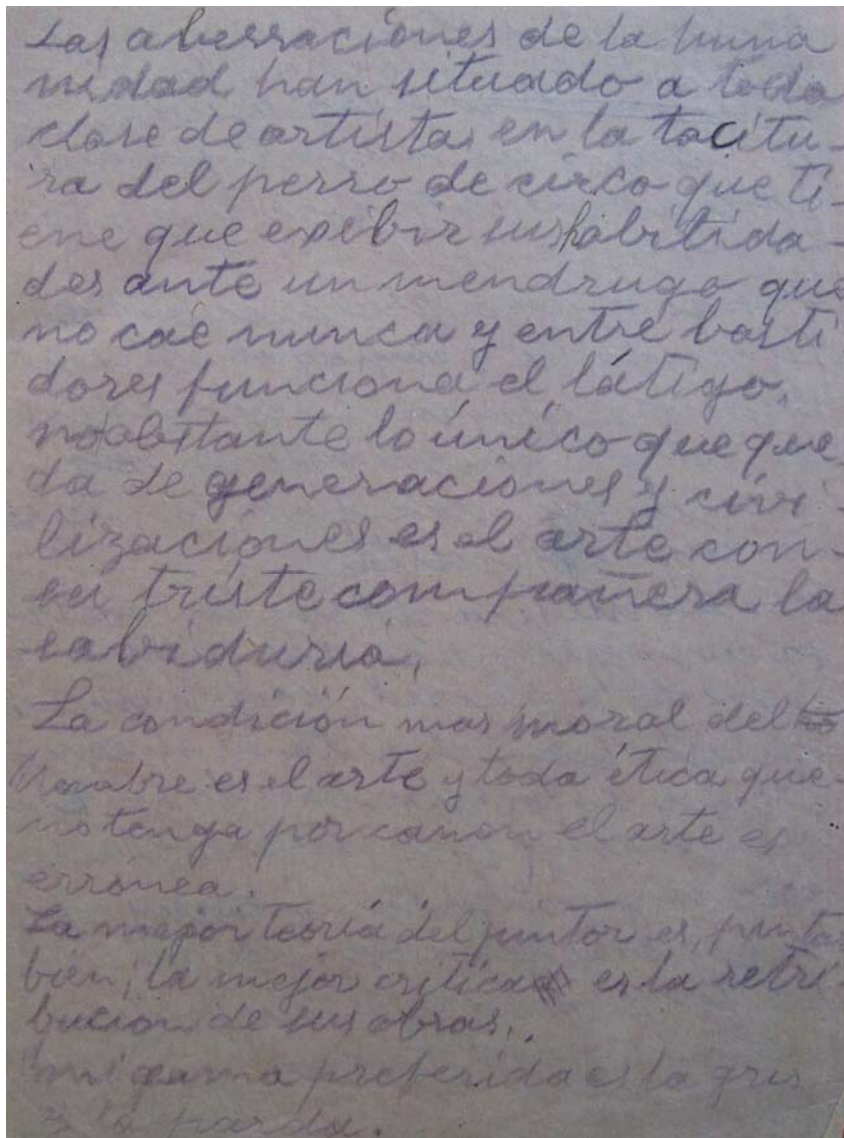 Las aberraciones de la huma
nidad han situado a toda
clase de artistas en la tacitu-
ra del perro de circo que ti-
ene que exibir sus habilida-
des ante un mendrugo que
no cae nunca y entre basti
dores funciona el látigo,
no obstante lo único que que
da de generaciones y civi-
lizaciones es el arte con-
su triste compañera la
sabiduria,
La condición mas moral del
hombre es el arte y toda ética que-
no tenga por canon el arte es
erronea.
La mejor teoria del pintor es, pintar
bien; la mejor critica es la retri-
bucion de sus obras,
mi gama preferida es la gris
y la parda.